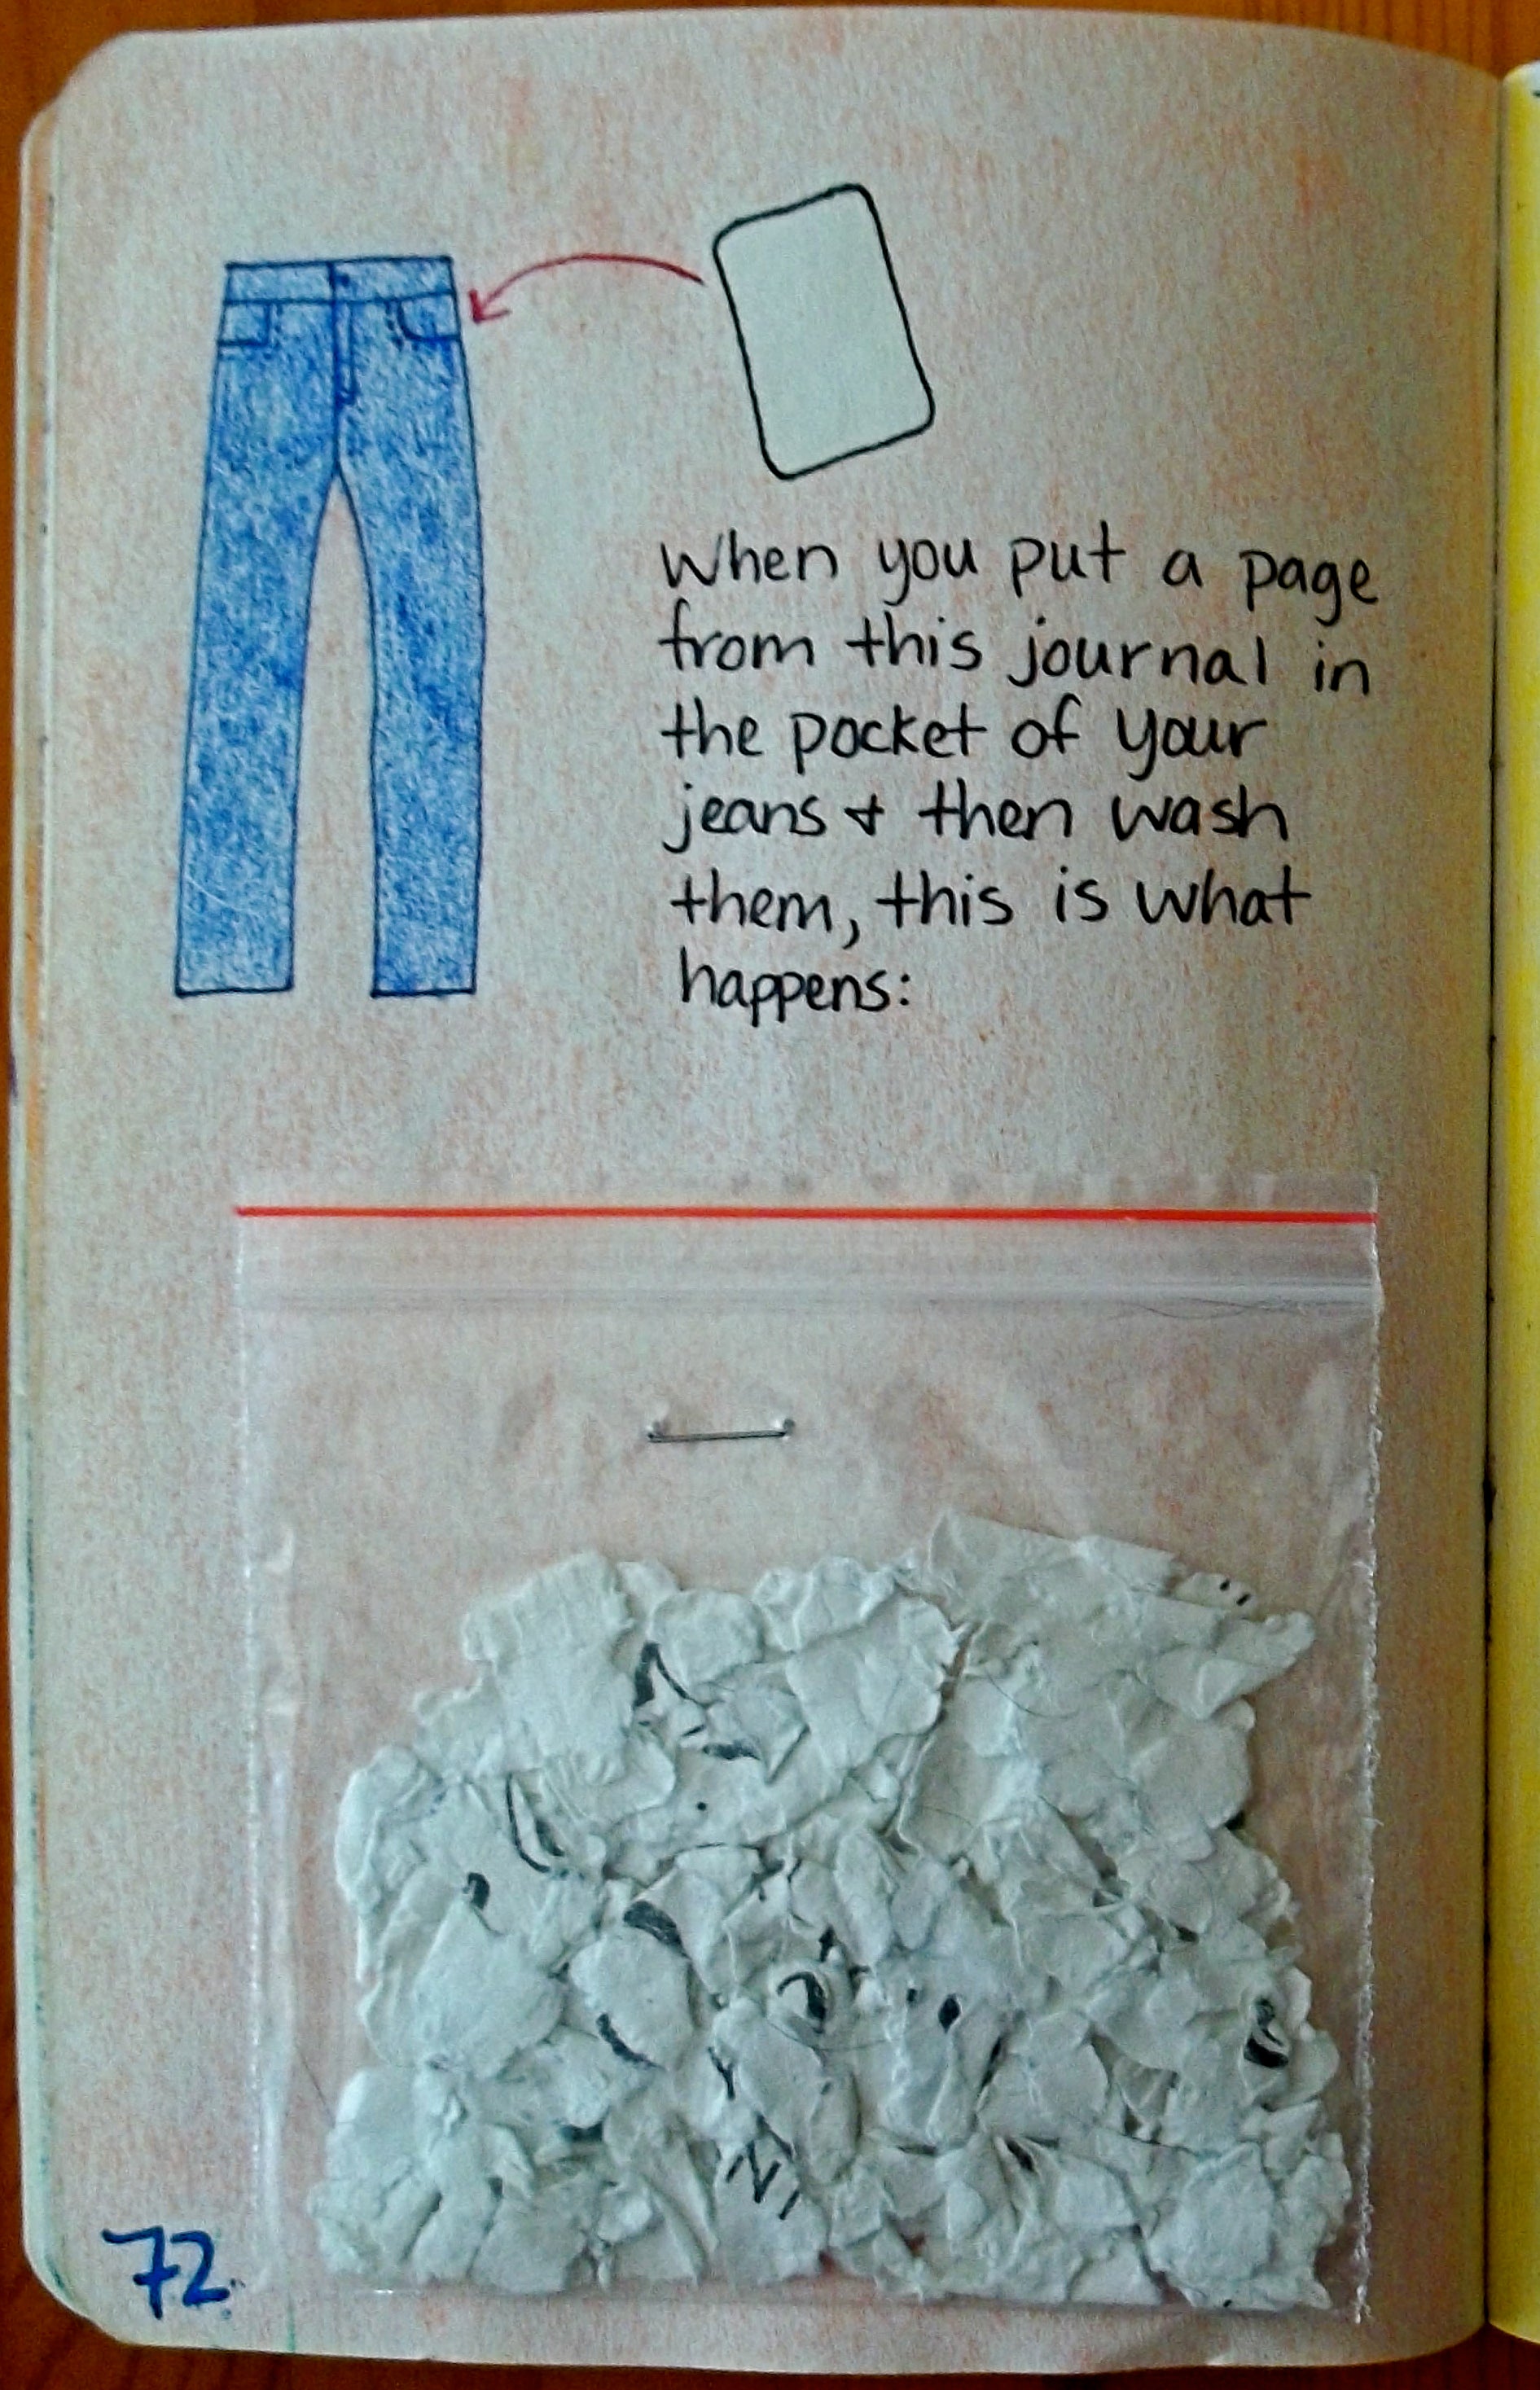 When you put a page
from this journal in
the pocket of your
jeans & then wash
them, this is what
happens:
72